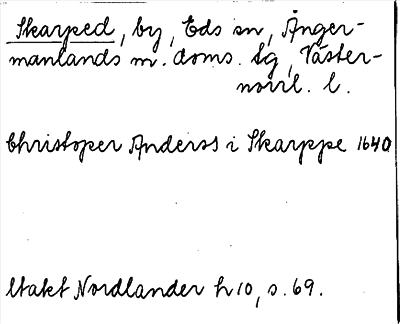 Skarped, by, Eds sn, Ånger-
manlands m. doms. tg, Väster-
norrl. l.
Christoper Anderss i Skarppe 1640
Utakt Nordlander h 10, s. 69.